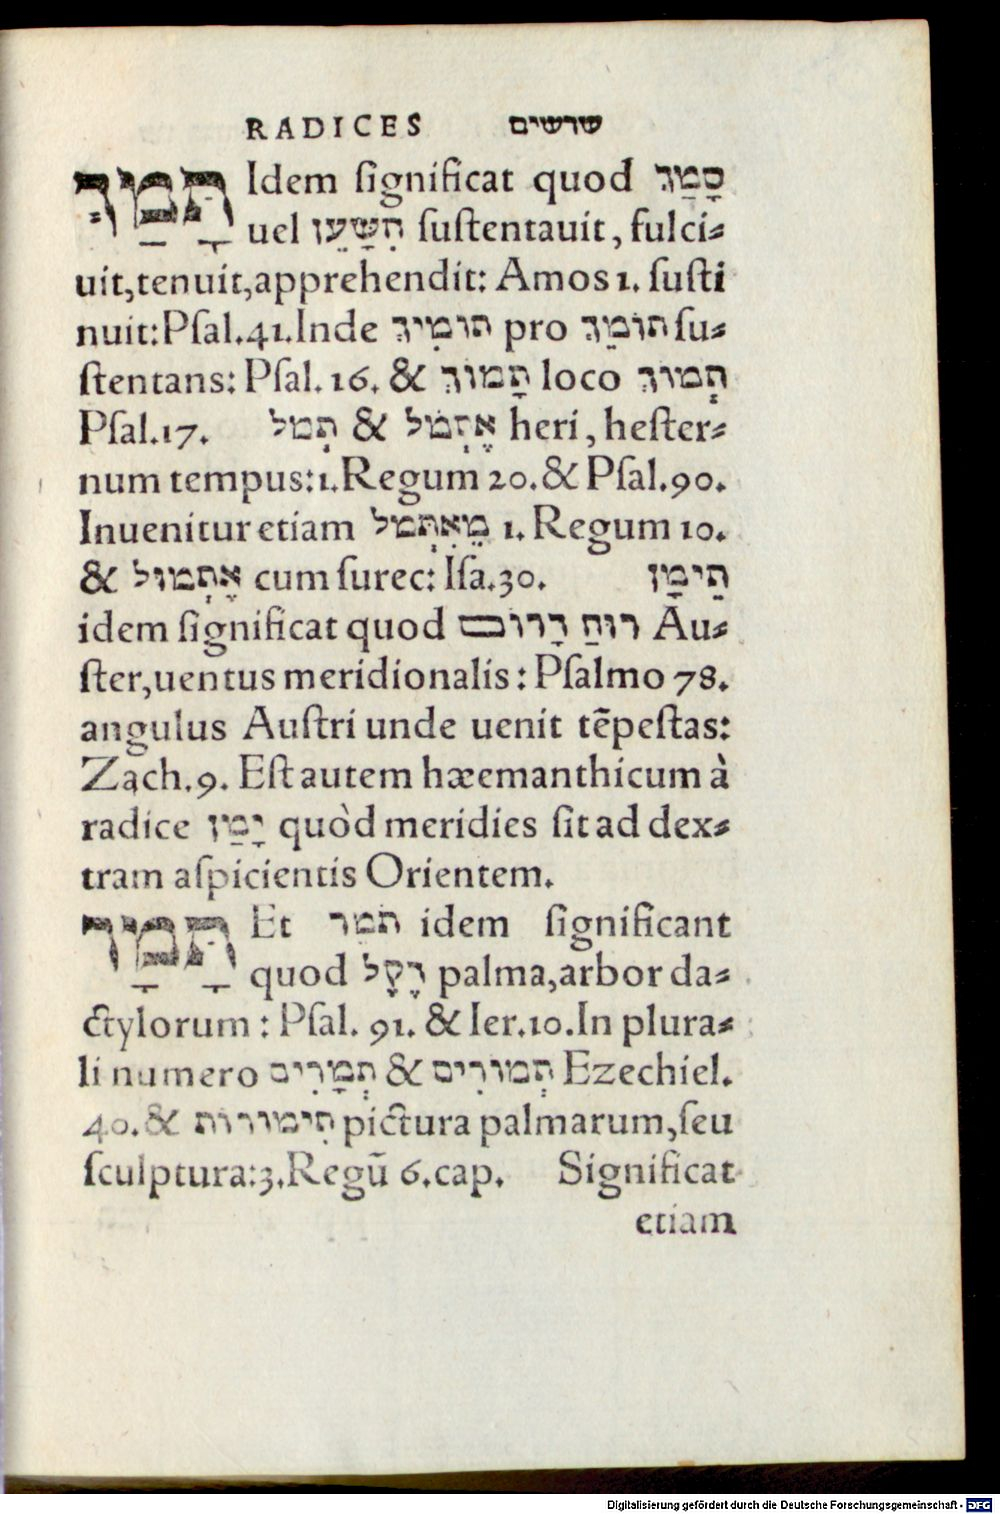 RADICES שרשים
תָּמַךְ Idem ſignificat quod סָמַךְ
uel הִשָּׁעֵן ſuſtentauit, fulci⸗
uit, tenuit, apprehendit: Amos 1. ſuſti
nuit: Pſal. 41. Inde תומִיךְ pro תּוֹמֵךְ ſu⸗
ſtentans: Pſal. 16. & תָּמוֹךְ loco תְּמוֹךְ
Pſal. 17. תְּמֹל & אֶתְמֹל heri, heſter⸗
num tempus: 1. Regum 20. & Pſal. 90.
Inuenitur etiam מֵאִתְּמֹל 1. Regum 10.
& אֶתְמוּל cum ſurec: Iſa. 30. תֵּימָן
idem ſignificat quod רוּחַ דָּרוֹם Au⸗
ſter, uentus meridionalis: Pſalmo 78.
angulus Auſtri unde uenit tēpeſtas:
Zach. 9. Eſt autem hæemanthicum à
radice יָמַן quòd meridies ſit ad dex⸗
tram aſpicientis Orientem.
Et תֹּמֶר idem ſignificant
quod דֶּקֶל palma, arbor da⸗
ctylorum: Pſal. 91. & Ier. 10. In plura⸗
li numero תְּמָרִים & תְּמוֹרִים Ezechiel.
40. & תִּימוֹרוֹת pictura palmarum, ſeu
ſculptura: 3. Regū 6. cap. Significat
etiam
Digitalisierung gefördert durch die Deutsche Forschungsgemeinschaft - DFG